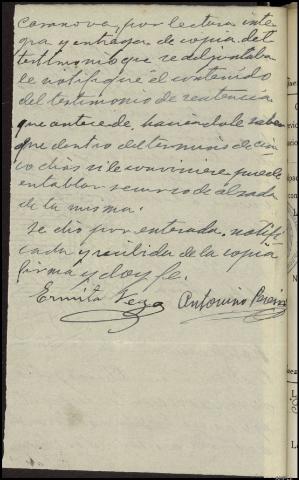 Casanova, por lectura inte-
gra y entrega de copia del
testimonio que se adjuntaba
le notifiqué el contenido
del testimonio de sentencia
que antecede, haciéndole saber
que dentro del termino de cin-
co dias si le conviniere puede
entablar recurso de alzada
de la misma.
Se dió por enterada, notifi-
cada y recibida de la copia
firma y doy fe.
Ermita Vega Antonino